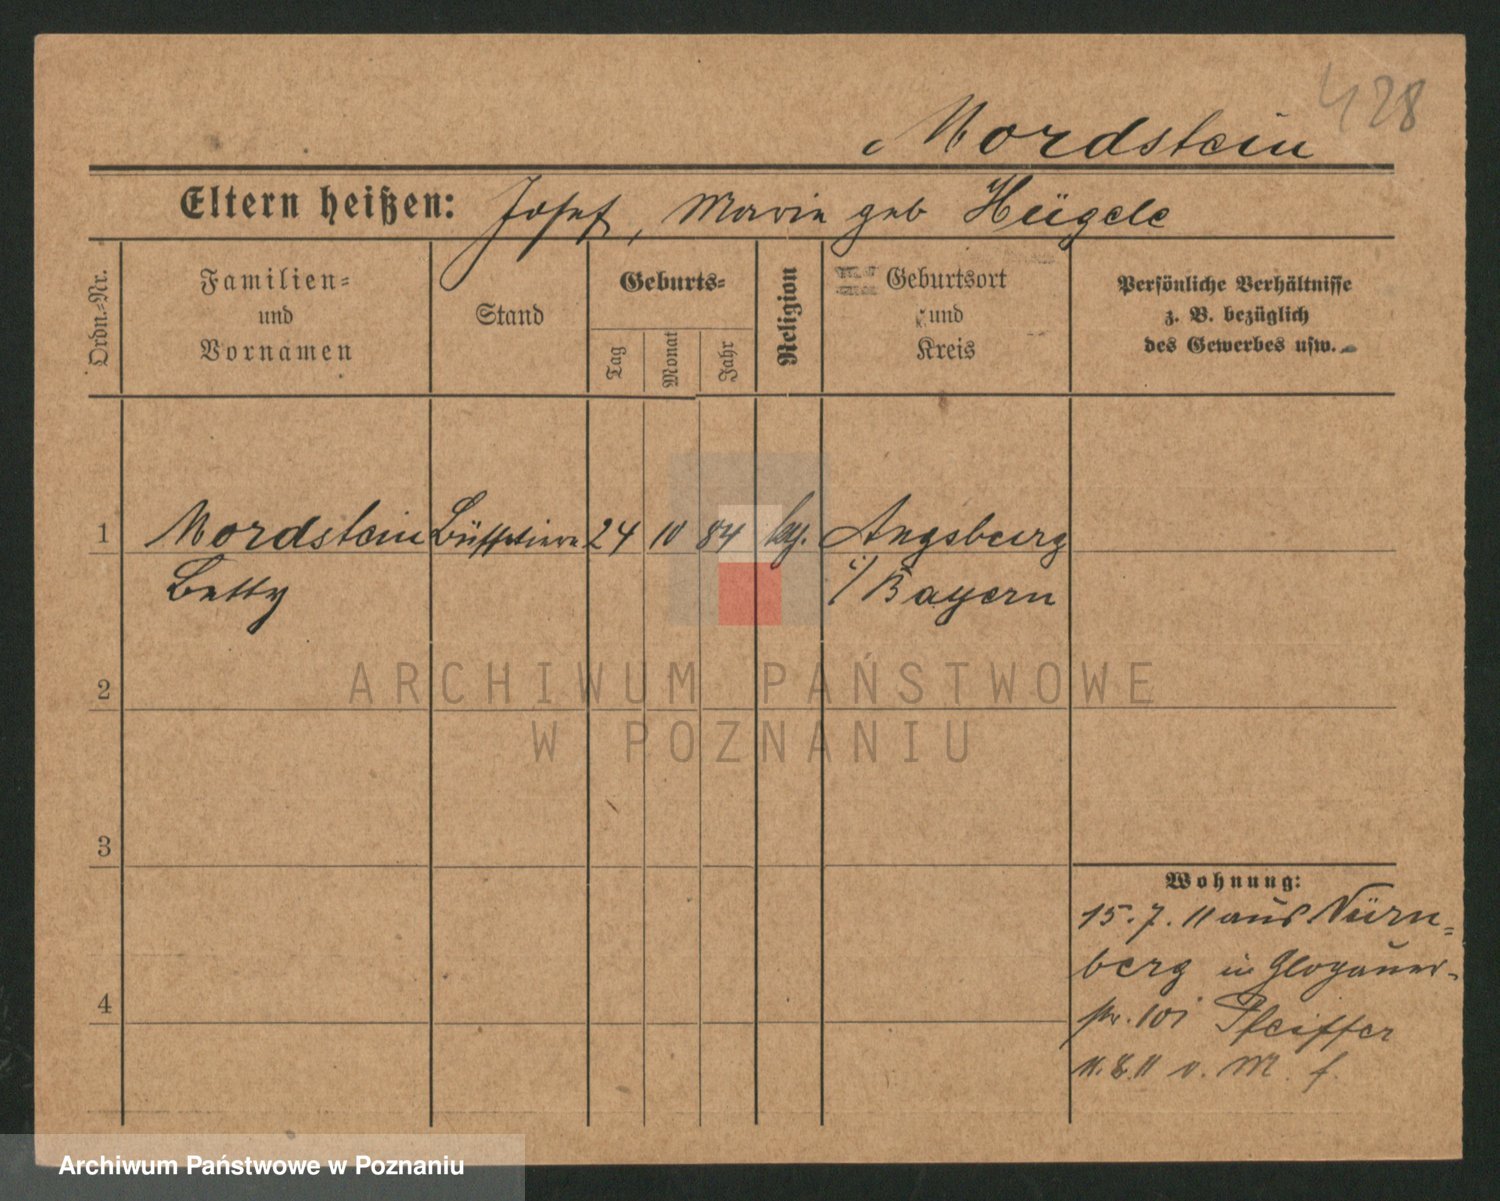 428
Nordstein
Eltern heißen: Josef, Marie geb Hügele
Ordn.-Nr.
Familien-
und
Vornamen
Stand
Geburts-
Tag
Monat
Jahr
Religion
Geburtsort
und
Kreis
Persönliche Verhältnisse
z. B. bezüglich
des Gewerbes usw.
1 Nordstein Büffetiere 24 10 84 Augsburg
Betty i/Bayern
2
3
4
Wohnung:
15. 7. 11 aus Nürn-
berg in Glogauer-
str. 101 Pfeiffer
v. M.
ARCHIWUM PAŃSTWOWE
W POZNANIU
Archiwum Państwowe w Poznaniu